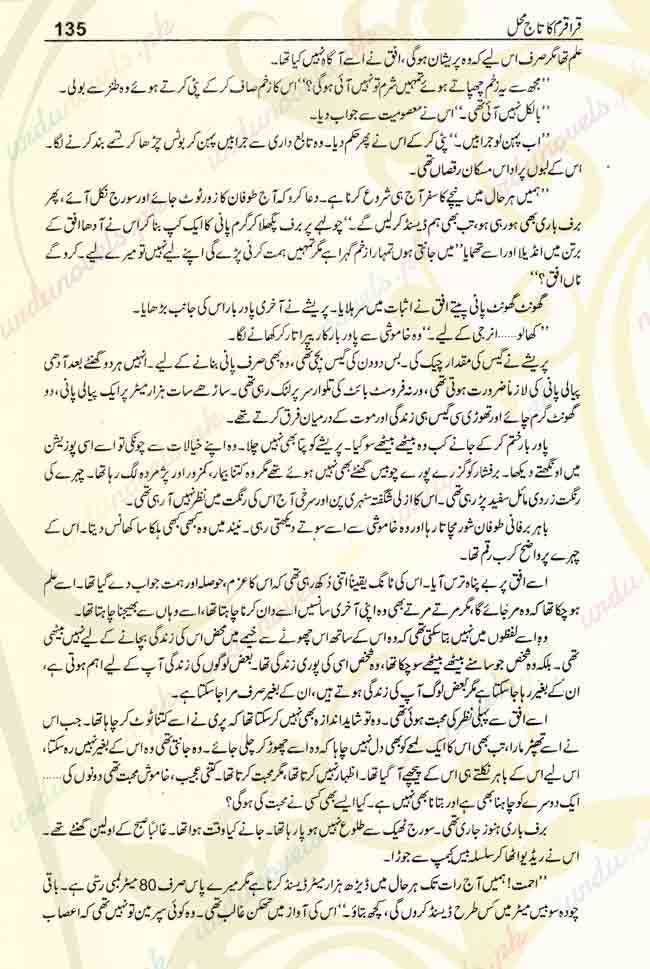 قراقرم کا تاج محل 135
علم تھا مگر صرف اس لیے کہ وہ پریشان ہو گی، افق نے اسے آگاہ نہیں کیا تھا۔
”مجھ سے یہ زخم چھپاتے ہوئے تمہیں شرم تو نہیں آئی ہو گی؟“ اس کا زخم صاف کر کے پٹی کرتے ہوئے وہ طنز سے بولی۔
”بالکل نہیں آئی تھی۔“ اس نے معصومیت سے جواب دیا۔
”اب پہن لو جرابیں۔“ پٹی کر کے اس نے پھر حکم دیا۔ وہ تابع داری سے جرابیں پہن کر بوٹس چڑھا کر تسمے بند کرنے لگا۔
اس کے لبوں پر اداس مسکان رقصاں تھی۔
”ہمیں ہر حال میں نیچے کا سفر آج ہی شروع کرنا ہے۔ دعا کرو کہ آج طوفان کا زور ٹوٹ جائے اور سورج نکل آئے، پھر
برف باری بھی ہو رہی ہو، تب بھی ہم ڈیسنڈ کر لیں گے۔“ چولہے پر برف پگھلا کر گرم پانی کا ایک کپ بنا کر اس نے آدھا افق کے
برتن میں انڈیلا اور اسے تھمایا ”میں جانتی ہوں تمہارا زخم گہرا ہے مگر تمہیں ہمت کرنی پڑے گی اپنے لیے نہیں تو میرے لیے۔ کرو گے
ناں افق؟“
گھونٹ گھونٹ پانی پیتے افق نے اثبات میں سر ہلایا۔ پریشے نے آخری پاور بار اس کی جانب بڑھایا۔
”کھا لو...... انرجی کے لیے۔“ وہ خاموشی سے پاور بار کا ریپر اتار کر کھانے لگا۔
پریشے نے گیس کی مقدار چیک کی۔ بس دو دن کی گیس بچی تھی، وہ بھی صرف پانی بنانے کے لیے۔ انہیں ہر دو گھنٹے بعد آدھی
پیالی پانی کی لازماً ضرورت ہوتی تھی، ورنہ فروسٹ بائٹ کی تلوار سر پر لٹک رہی تھی۔ ساڑھے سات ہزار میٹر پر ایک پیالی پانی، دو
گھونٹ گرم چائے اور تھوڑی سی گیس ہی زندگی اور موت کے درمیان فرق کرتے تھے۔
پاور بار ختم کر کے جانے کب وہ بیٹھے بیٹھے سو گیا۔ پریشے کو پتا بھی نہیں چلا۔ وہ اپنے خیالات سے چونکی تو اسے اسی پوزیشن
میں اونگھتے دیکھا۔ برفشار کو گزرے پورے چوبیس گھنٹے بھی نہیں ہوئے تھے مگر وہ کتنا بیمار، کمزور اور پژمردہ لگ رہا تھا۔ چہرے کی
رنگت زردی مائل سفید پڑ رہی تھی۔ اس کا ازلی شگفتہ سنہری پن اور سرخی آج اس کی رنگت میں نظر نہیں آ رہی تھی۔
باہر برفانی طوفان شور مچاتا رہا اور وہ خاموشی سے اسے سوتے دیکھتی رہی۔ نیند میں وہ کبھی کبھی ہلکا سا کھانس دیتا۔ اس کے
چہرے پر واضح کرب رقم تھا۔
اسے افق پر بے پناہ ترس آیا۔ اس کی ٹانگ یقیناً اتنی دُکھ رہی تھی کہ اس کا عزم، حوصلہ اور ہمت جواب دے گیا تھا۔ اسے علم
ہو چکا تھا کہ وہ مر جائے گا، مگر مرتے مرتے بھی وہ اپنی آخری سانسیں اسے دان کرنا چاہتا تھا، اسے وہاں سے بھیجنا چاہتا تھا۔
وہ اسے لفظوں میں نہیں بتا سکتی تھی کہ وہ اس کے ساتھ اس چھوٹے سے خیمے میں محض اس کی زندگی بچانے کے لیے نہیں بیٹھی
تھی۔ بلکہ وہ شخص جو سامنے بیٹھے بیٹھے سو چکا تھا، وہ شخص اس کی پوری زندگی تھا۔ بعض لوگوں کی زندگی آپ کے لیے اہم ہوتی ہے،
ان کے بغیر رہا جا سکتا ہے مگر بعض لوگ آپ کی زندگی ہوتے ہیں، ان کے بغیر صرف مرا جا سکتا ہے۔
اسے افق سے پہلی نظر کی محبت ہوئی تھی۔ وہ تو شاید اندازہ بھی نہیں کر سکتا تھا کہ پری نے اسے کتنا ٹوٹ کر چاہا تھا۔ جب اس
نے اسے تھپڑ مارا، تب بھی اس کا ایک لمحے کو بھی دل نہیں چاہا کہ وہ اسے چھوڑ کر چلی جائے۔ وہ جانتی تھی وہ اس کے بغیر نہیں رہ سکتا،
اس لیے اس کے باہر نکلتے ہی اس کے پیچھے آ گیا تھا۔ اظہار نہیں کرتا تھا، مگر محبت کرتا تھا۔ کتنی عجیب، خاموش محبت تھی دونوں کی......
ایک دوسرے کو چاہنا بھی ہے اور بتانا بھی نہیں ہے۔ کیا ایسے بھی کسی نے محبت کی ہو گی؟
برف باری ہنوز جاری تھی۔ سورج ٹھیک سے طلوع نہیں ہو پا رہا تھا۔ جانے کیا وقت ہوا تھا۔ غالباً صبح کے اولین گھنٹے تھے۔
اس نے ریڈیو اٹھا کر سلسلہ بیس کیمپ سے جوڑا۔
”احمت! ہمیں آج رات تک ہر حال میں ڈیڑھ ہزار میٹر ڈیسنڈ کرنا ہے مگر میرے پاس صرف 80 میٹر لمبی رسی ہے۔ باقی
چودہ سو بیس میٹر میں کس طرح ڈیسنڈ کروں گی، کچھ بتاؤ۔“ اس کی آواز میں تھکن غالب تھی۔ وہ کوئی سپر مین تو نہیں تھی کہ اعصاب
urdunovels.pk